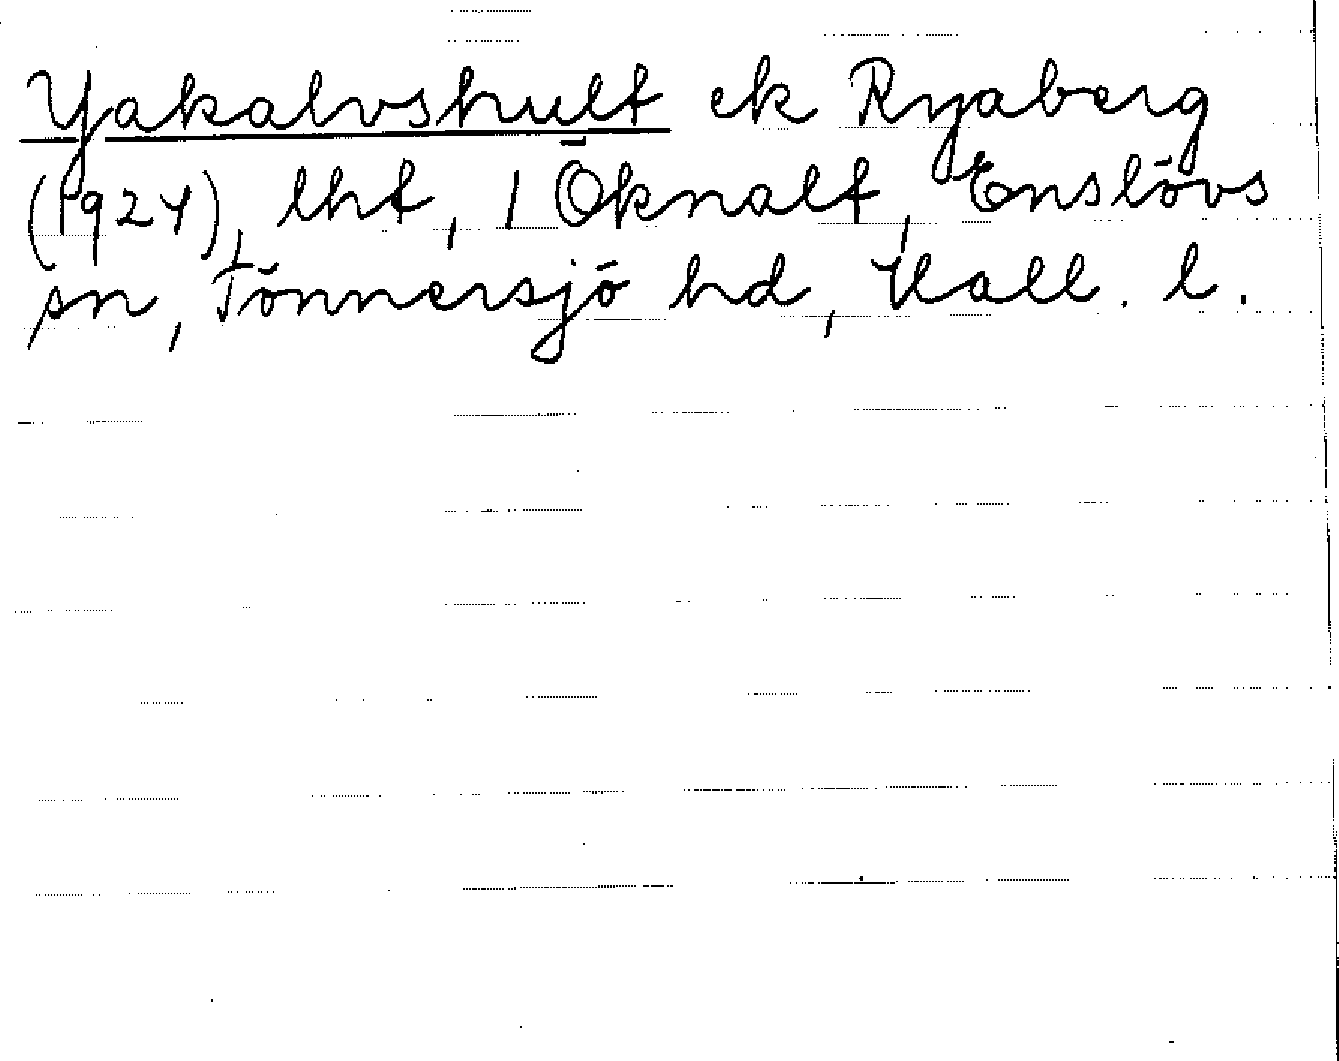 Yakalvshult ek Ryaberg
(1924), lht, 1 Öknalt, Enslövs
sn, Tönnersjö hd, Hall. l.